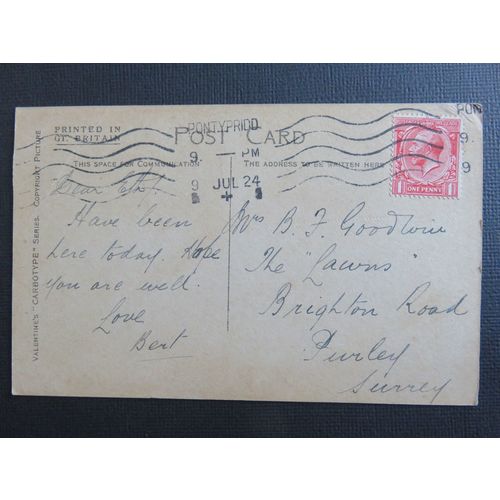 PRINTED IN
GT. BRITAIN
POST CARD
PONTYPRIDD
9. — PM
9 JUL 24
THIS SPACE FOR COMMUNICATION
THE ADDRESS TO BE WRITTEN HERE
VALENTINE'S "CARBOTYPE" SERIES. COPYRIGHT PICTURE
Dear
Have been
here today. Hope
you are well.
Love
Bert
Mrs B. F. Goodwin
The "Lawns"
Brighton Road
Purley
Surrey
1 ONE PENNY 1
PON
9.
9